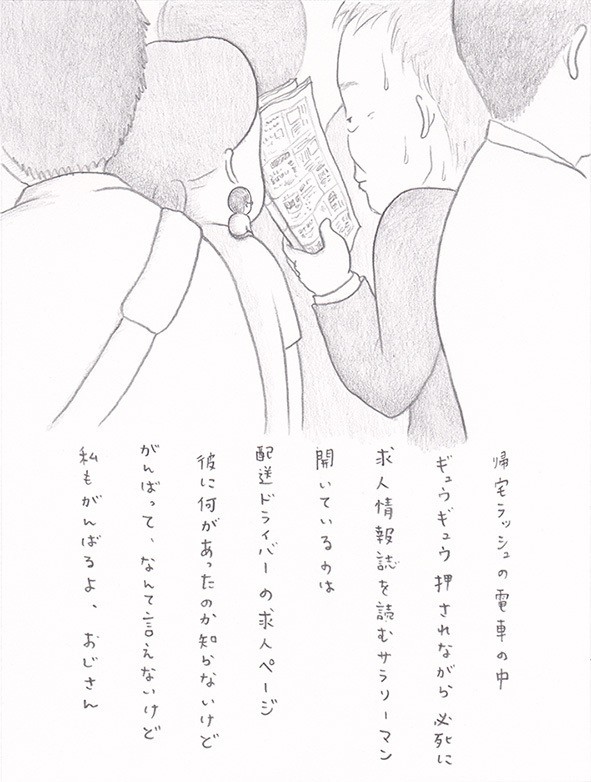 帰宅ラッシュの電車の中
ギュウギュウ押されながら 必死に
求人情報誌を読むサラリーマン
開いているのは
配送ドライバーの求人ページ
彼に何があったのか知らないけど
がんばって、なんて言えないけど
私もがんばるよ、おじさん